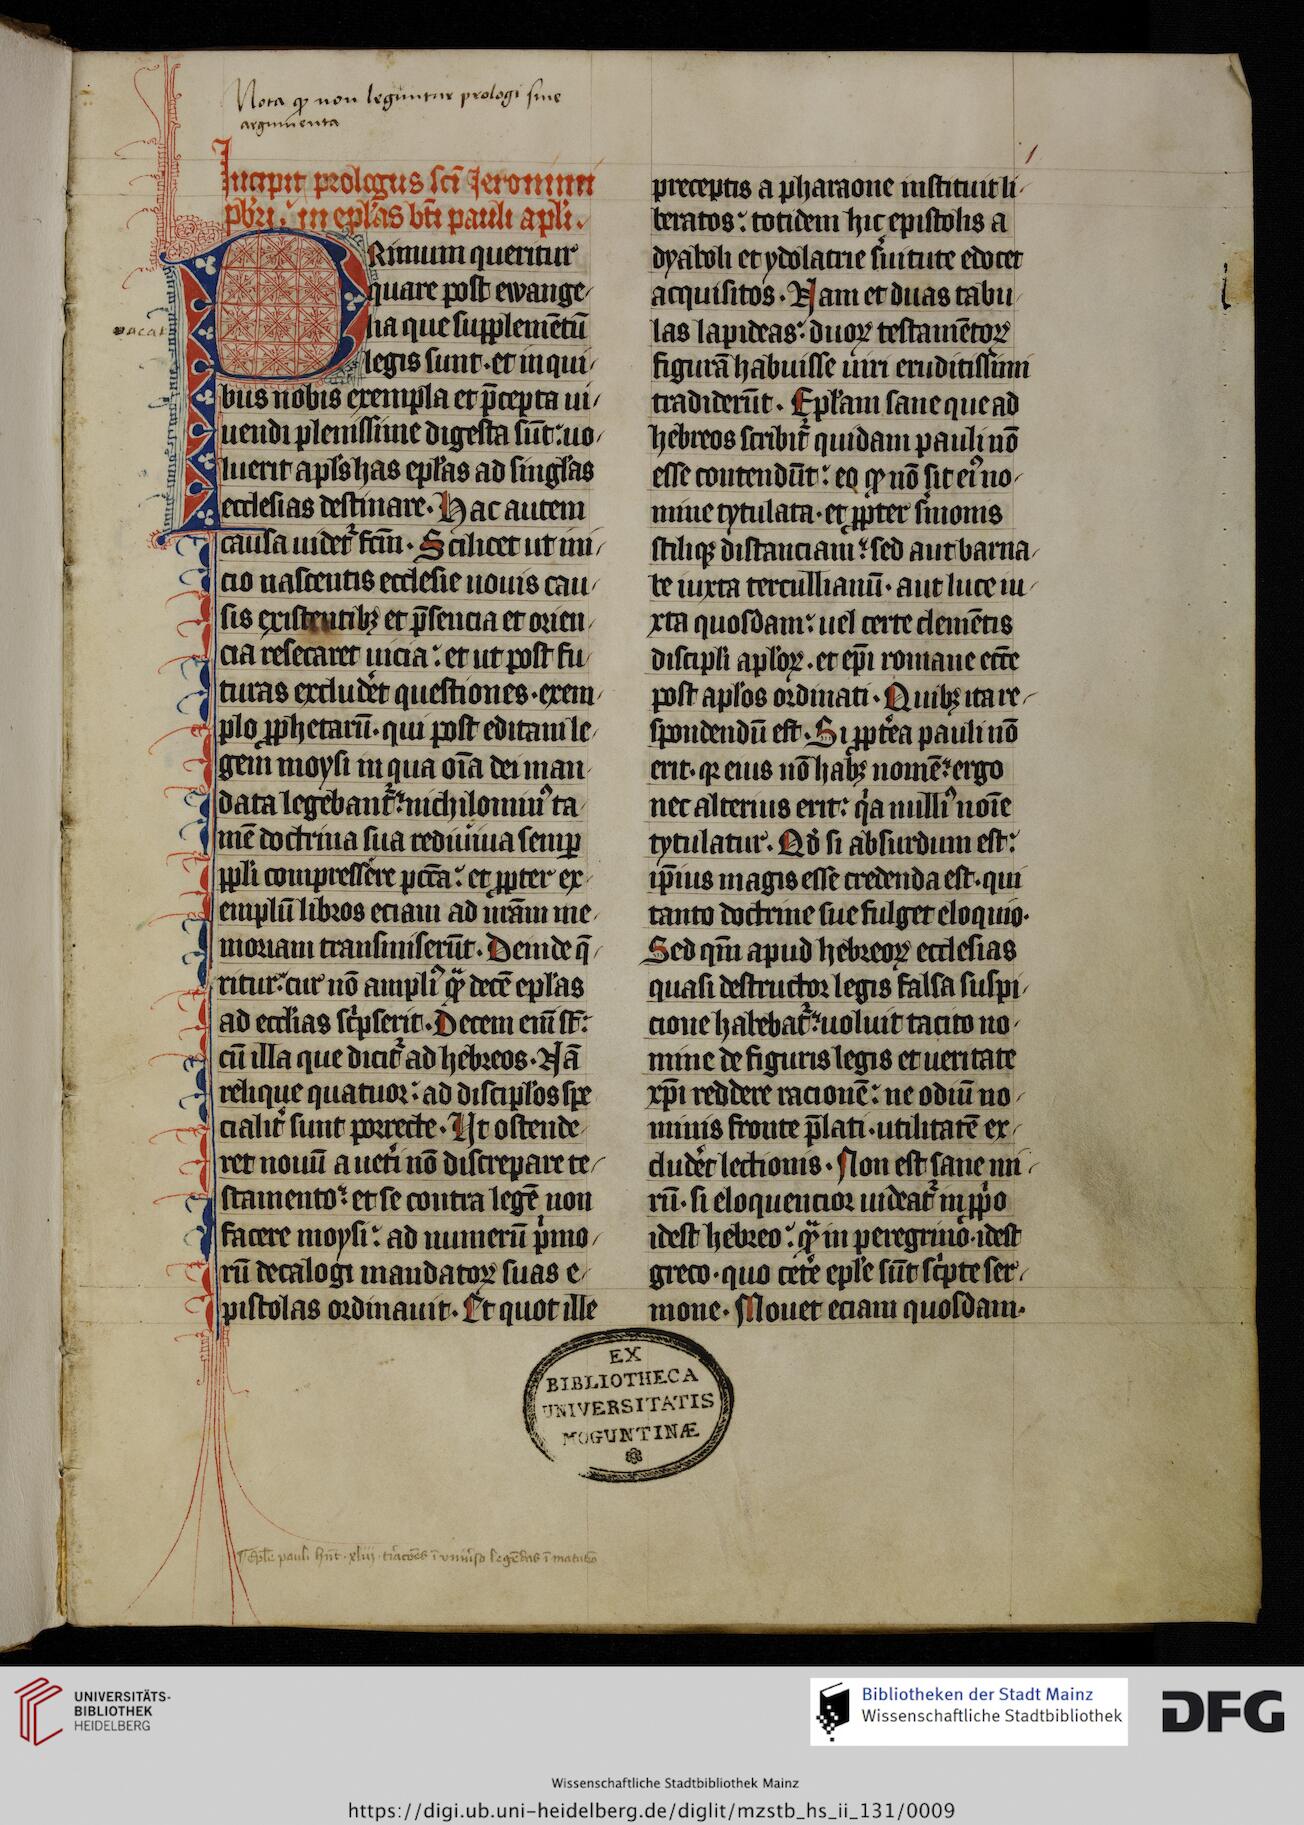 Nota ꝙ non leguntur prologi siue
argumenta
1
Incipit prologus scī Jeronimi
pbr̄i. in epl̄as bt̄i pauli apl̄i.
PRimum queritur
quare post ewange-
lia que supplemētū
legis sunt·et in qui-
bus nobis exempla et p̄cepta ui-
uendi plenissime digesta sūt: uo-
luerit apl̄s has epl̄as ad singl̄as
ecclesias destinare. Hac autem
causa uidet᷑ fc̄m. Scilicet ut ini-
cio nascentis ecclesie nouis cau-
sis existentibꝫ et p̄sencia et orien-
cia resecaret uicia: et ut post fu-
turas excludẽt questiones·exem-
plo ꝓphetarū·qui post editam le-
gem moysi in qua oīa dei man-
data legebant᷑: nichilominꝰ ta-
mē doctrina sua rediuiua semꝑ
ppl̄i compressere pcc̄a: et ꝓpter ex-
emplū libros eciam ad nrām me-
moriam transmiserūt. Deinde q̄-
ritur: cur nō ampliꝰ qͣꝫ decē epl̄as
ad eccl̄ias scͥpserit. Decem eī st̄:
cū illa que dicit᷑ ad hebreos. Nā
relique quatuor: ad discipl̄os spe
cialit̃ sunt porrecte. Ut ostende-
ret nouū a uet̃i nō discrepare te-
stamento: et se contra legē non
facere moysi: ad numerū pͥmo-
rū decalogi mandatoꝝ suas e-
pistolas ordinauit. Et quot ille
preceptis a pharaone instituit li-
beratos: totidem hic epistolis a
dyaboli et ydolatrie s̃uitute edocet
acquisitos. Nam et duas tabu-
las lapideas: duoꝝ testamētoꝝ
figurā habuisse uiri eruditissimi
tradiderūt. Epl̄am sane que ad
hebreos scribit᷑ quidam pauli nō
esse contendūt: eo ꝙ nō sit eiꝰ no-
mine tytulata·et ꝓpter s̃monis
stiliqꝫ distanciam: sed aut barna-
be iuxta tercullianū· aut luce iu-
xta quosdam: uel certe clemētis
discipl̄i apl̄oꝝ·et ep̄i romane ecc̄e
post apl̄os ordinati. Quibꝫ ita re-
spondendū est. Si ꝓpt̃ea pauli nō
erit· qꝛ eius nō habꝫ nomē: ergo
nec alterius erit: qͣa nulliꝰ noīe
tytulatur. Qd̓ si absurdum est:
ip̄ius magis esse credenda est·qui
tanto doctrine sue fulget eloquio.
Sed qm̄ apud hebreoꝝ ecclesias
quasi destructor legis falsa suspi-
cione habebat᷑: uoluit tacito no-
mine de figuris legis et ueritate
xp̄i reddere racionē: ne odiū no-
minis fronte p̄lati·utilitatē ex-
cludẽt lectionis. Non est sane mi-
rū· si eloquencior uideat᷑ in ꝓpͥo
idest hebreo: qͣꝫ in peregrino·idest
greco·quo cet̃e epl̄e sūt scͥpte ser-
mone. Mouet eciam quosdam·
vacat
EX
BIBLIOTHECA
UNIVERSITATIS
MOGUNTINÆ
UNIVERSITÄTS-
BIBLIOTHEK
HEIDELBERG
Bibliotheken der Stadt Mainz
Wissenschaftliche Stadtbibliothek
DFG
Wissenschaftliche Stadtbibliothek Mainz
https://digi.ub.uni-heidelberg.de/diglit/mzstb_hs_ii_131/0009